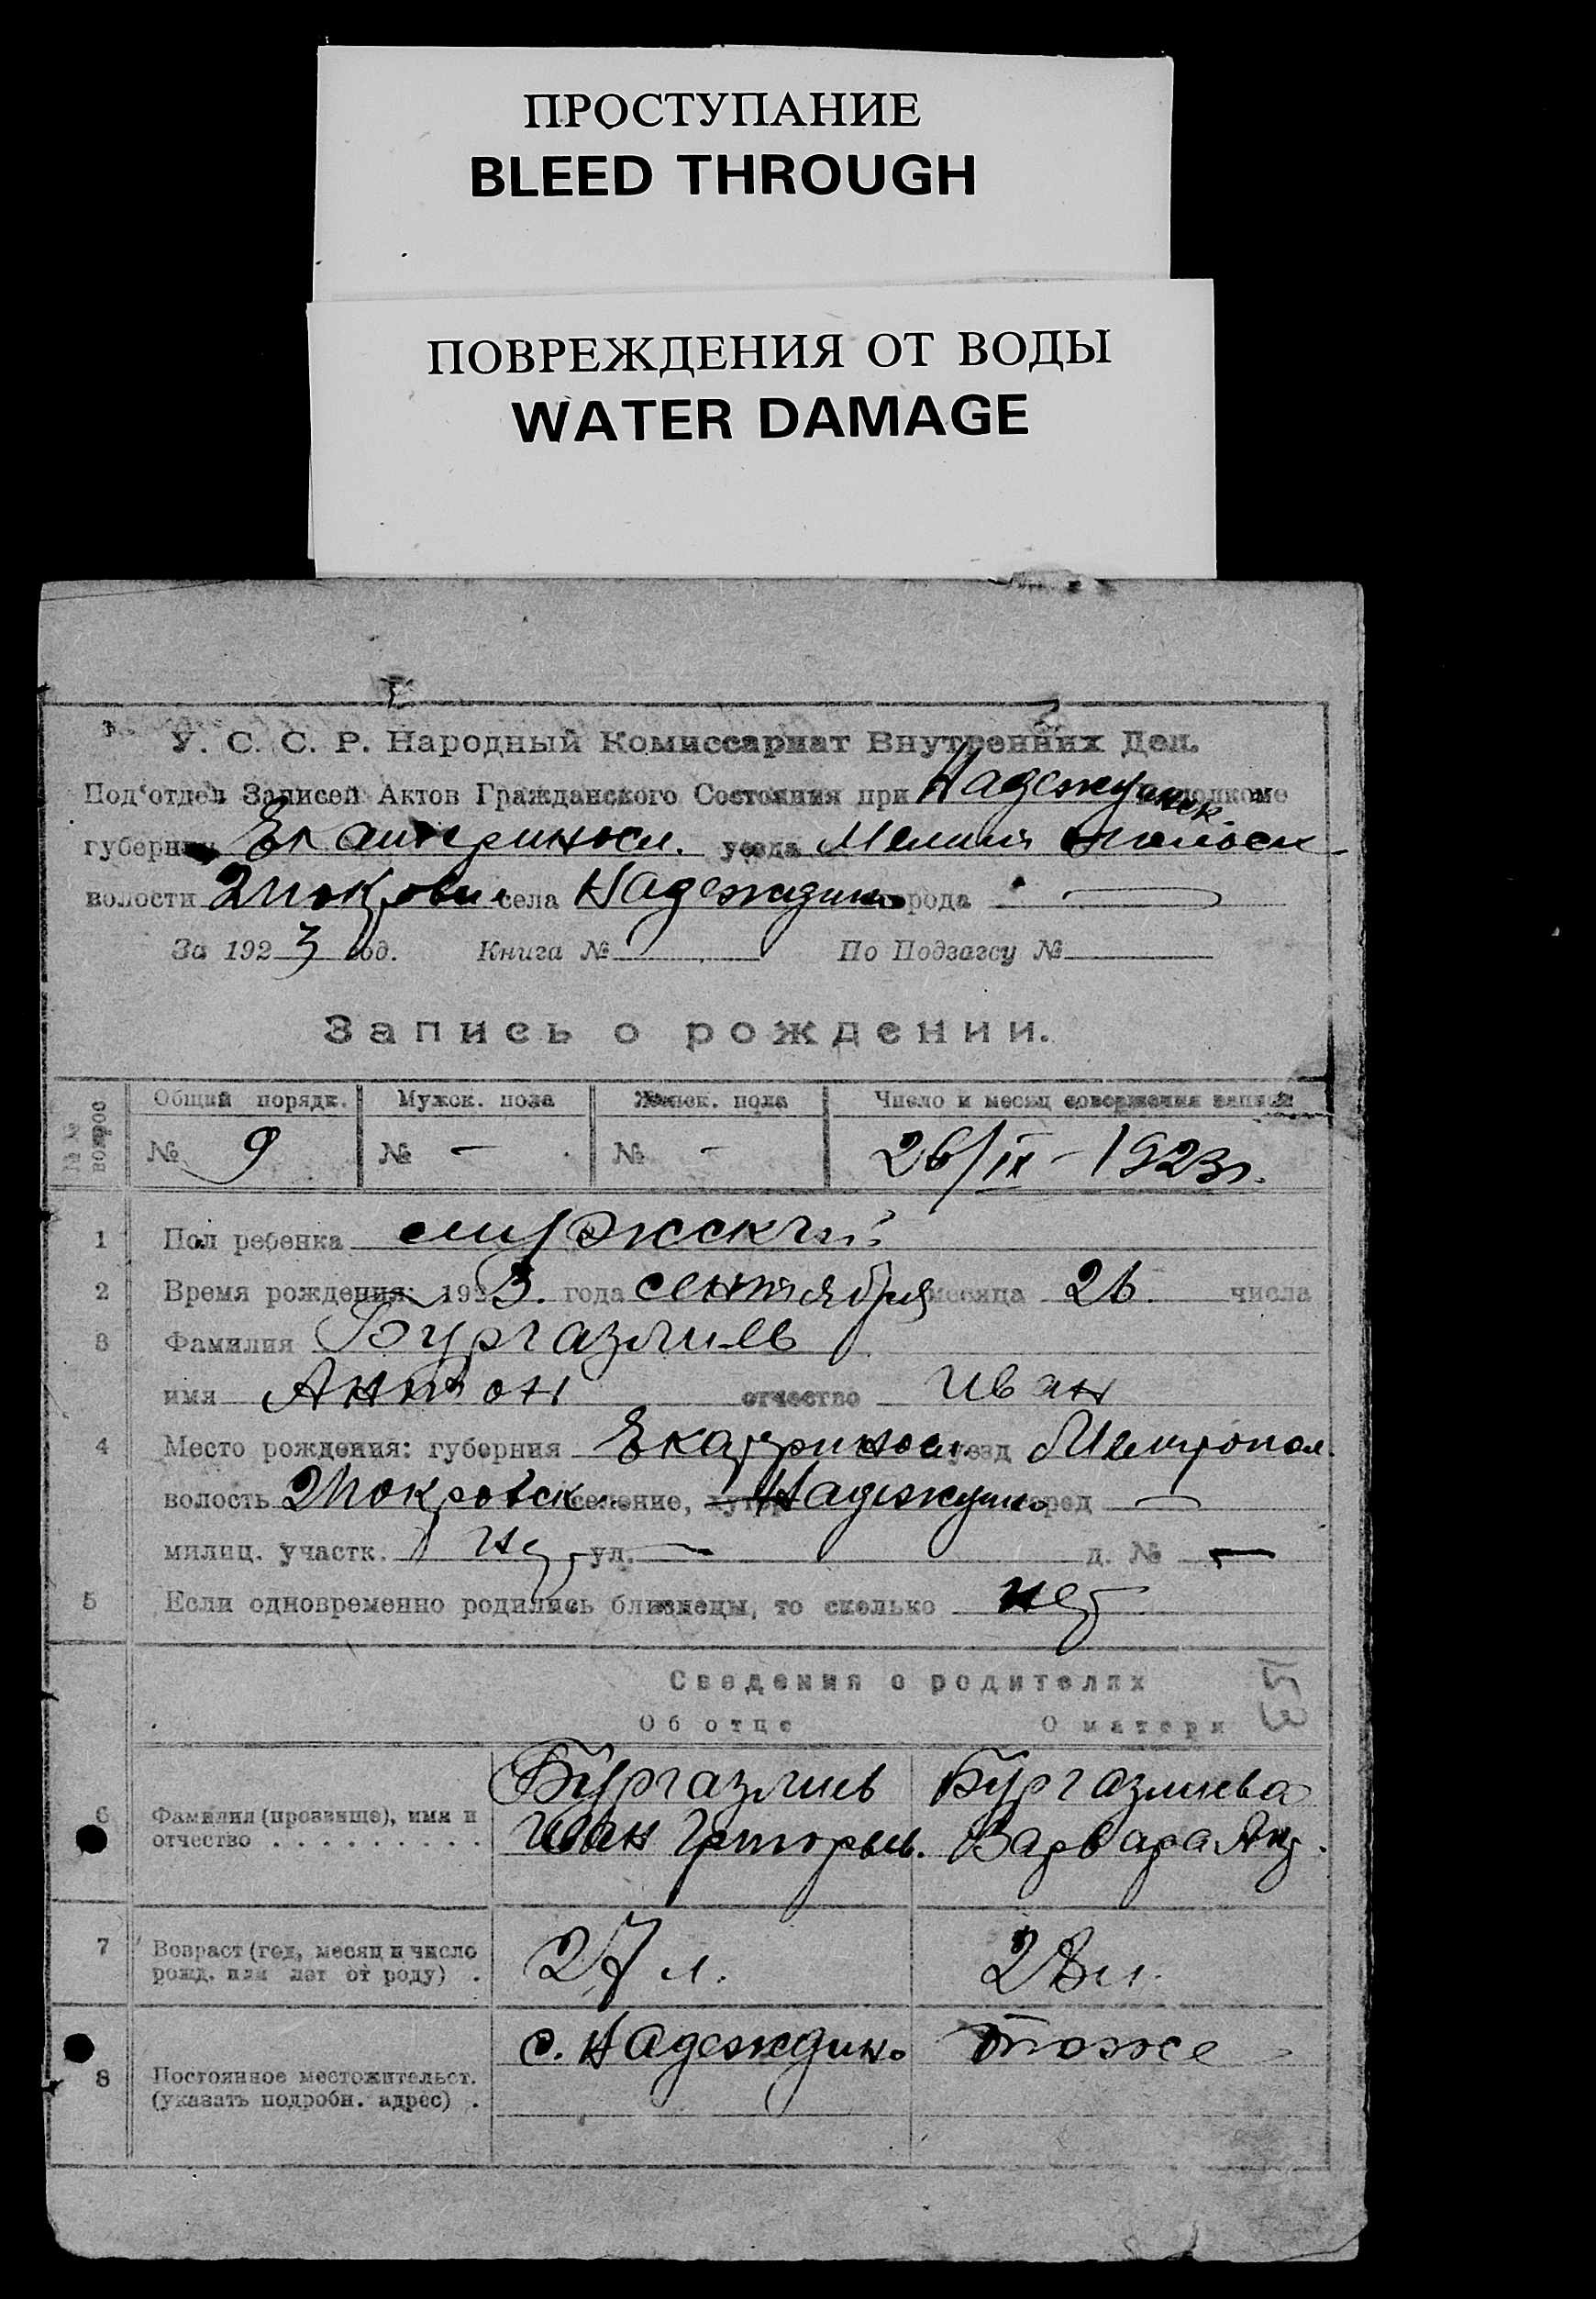 ПРОСТУПАНИЕ
BLEED THROUGH
ПОВРЕЖДЕНИЯ ОТ ВОДЫ
WATER DAMAGE
У. С. С. Р. Народный Комиссариат Внутренних Дел.
Под'отдел Записей Актов Гражданского Состояния при Надеждинск.
губернии Екатериносл. уезда
волости села Надеждино города —
За 1923 год. Книга № По Подзагсу №
Запись о рождении.
№№ вопрос Общий порядк. Мужск. пола Женск. пола Число и месяц совершения записи
№ 9 № – № – 26/IX – 1923 г.
1 Пол ребенка мужской
2 Время рождения: 1923. года сентября месяца 26 числа
3 Фамилия Бургазлиев
имя Антон отчество Иван
4 Место рождения: губерния Екатриносл. уезд Мелитопол.
волость Покровск. селение, хутор Надеждино город —
милиц. участк. нет ул. — д. № —
5 Если одновременно родились близнецы, то сколько нет
Сведения о родителях
Об отце О матери
153
6 Фамилия (прозвище), имя и отчество . . . . . . . . . Бургазлиев Иван Григорьев. Бургазлиева Варвара Анд.
7 Возраст (год, месяц и число рожд. или лет от роду) . 27 л. 28 л.
8 Постоянное местожительст. (указать подробн. адрес) . с. Надеждино тоже